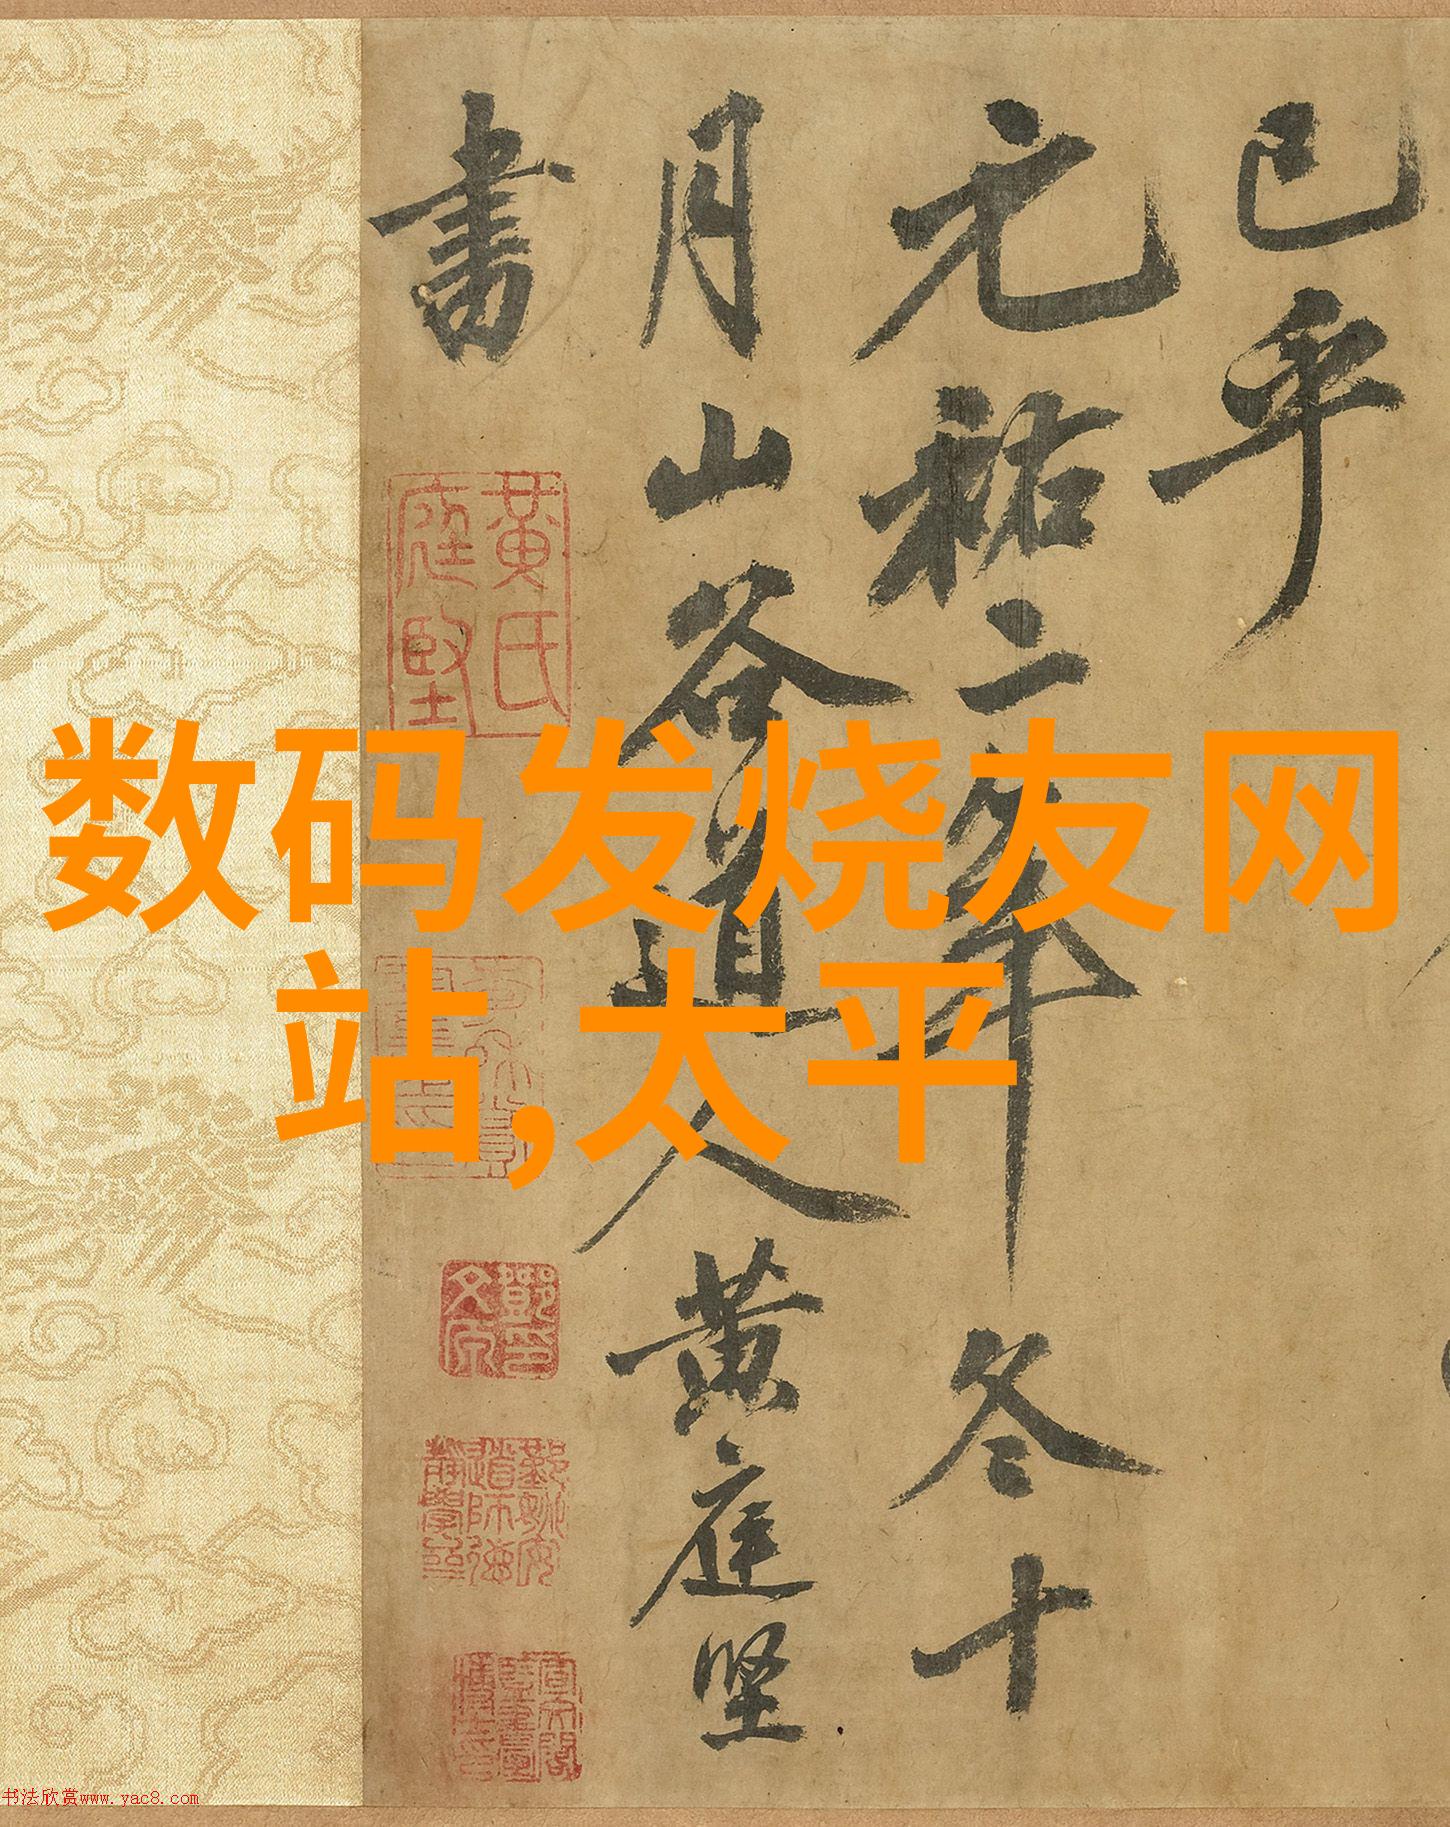 已乎
元祐二年冬十
月山谷道人黄庭坚
書
黄氏
庭堅
数码发烧友网
站,太平
书法欣赏www.yac8.com